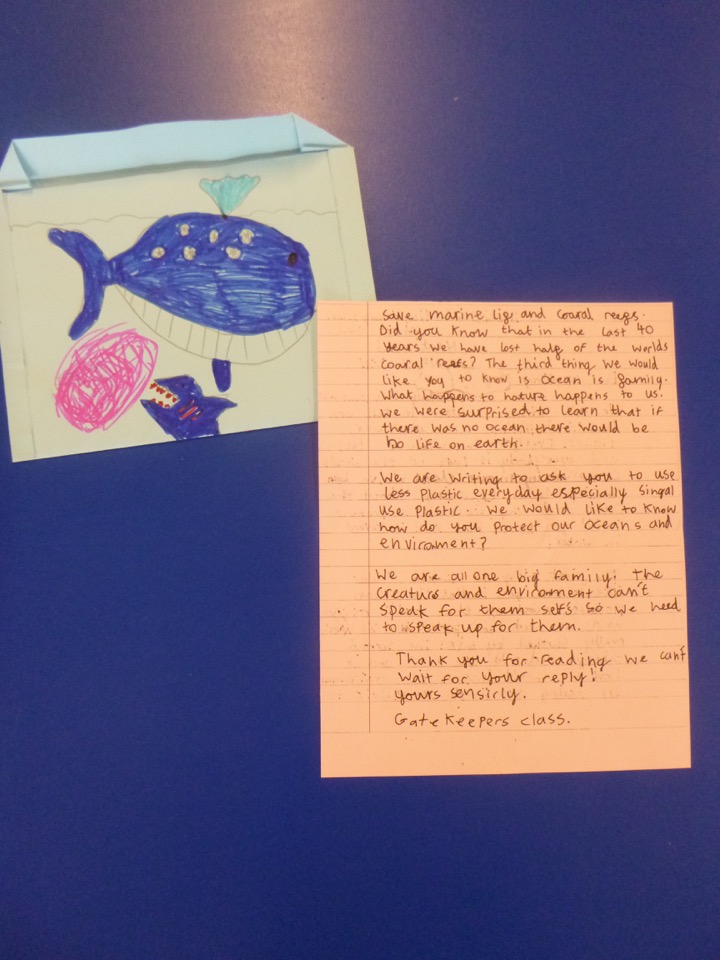 Save marine lige and Coaral reegs.
Did you know that in the last 40
years we have lost halg of the worlds
Coaral reefs? The third thing we would
like you to know is ocean is family.
What happens to nature happens to us.
We were surprised to learn that if
there was no ocean there would be
no life on earth.
We are writing to ask you to use
less plastic everyday especially singal
use plastic. We would like to know
how do you protect our oceans and
enviroment?
We are all one big family. The
creature and enviroment can't
speak for them selfs so we need
to speak up for them.
Thank you for reading we can't
wait for your reply!
yours sensirly.
GateKeepers class.